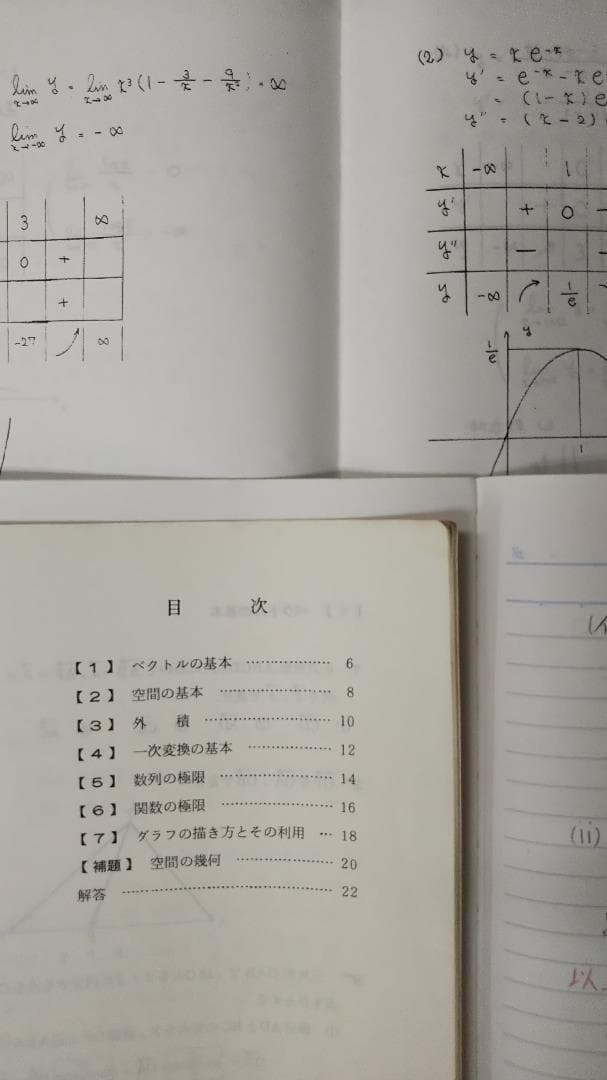 lim x→∞ y = lim x→∞ x³(1 - 3/x - 9/x²) = ∞
lim x→-∞ y = -∞
3 ∞
0 +
+
-27 ↗ ∞
(2) y = x e^-x
y' = e^-x - x e
= (1-x) e
y'' = (x-2)
x -∞ 1
y' + 0 -
y'' - -
y -∞ ↗ 1/e
y
1/e
1
目 次
【1】 ベクトルの基本 ………………… 6
【2】 空間の基本 ………………… 8
【3】 外 積 ………………… 10
【4】 一次変換の基本 ………………… 12
【5】 数列の極限 ………………… 14
【6】 関数の極限 ………………… 16
【7】 グラフの描き方とその利用 … 18
【補題】 空間の幾何 ………………… 20
解答 ………………… 22
(ii)